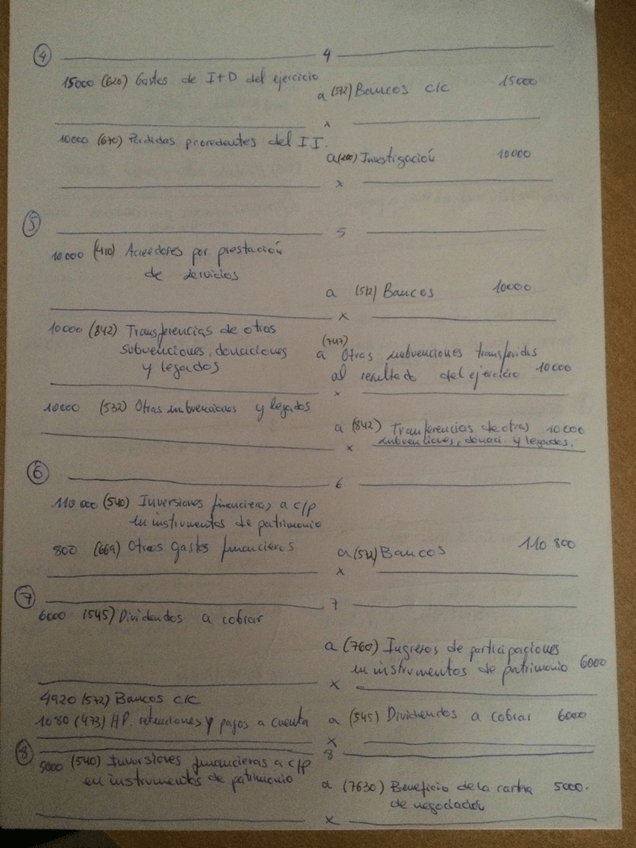 4 4
15000 (620) Gastos de I+D del ejercicio
a (572) Bancos c/c 15000
x
10000 (670) Pérdidas procedentes del II.
a (200) Investigación 10000
x
5 5
10000 (410) Acreedores por prestación
de servicios
a (572) Bancos 10000
x
10000 (842) Transferencias de otras
subvenciones, donaciones
y legados
(747)
a Otras subvenciones transferidas
al resultado del ejercicio 10000
x
10000 (532) Otras subvenciones y legados
a (842) Tranferencias de otras 10000
subvenciones, donaci. y legados.
x
6 6
110 000 (540) Inversiones financieras a c/p
en instrumentos de patrimonio
800 (669) Otros Gastos financieros
a (572) Bancos 110 800
x
7 7
6000 (545) Dividendos a cobrar
a (760) Ingresos de participaciones
en instrumentos de patrimonio 6000
x
4920 (572) Bancos c/c
1080 (473) HP. retenciones y pagos a cuenta a (545) Dividendos a cobrar 6000
x
8 8
5000 (540) Inversiones financieras a c/p
en instrumentos de patrimonio
a (7630) Beneficio de la cartra 5000.
de negociación
x